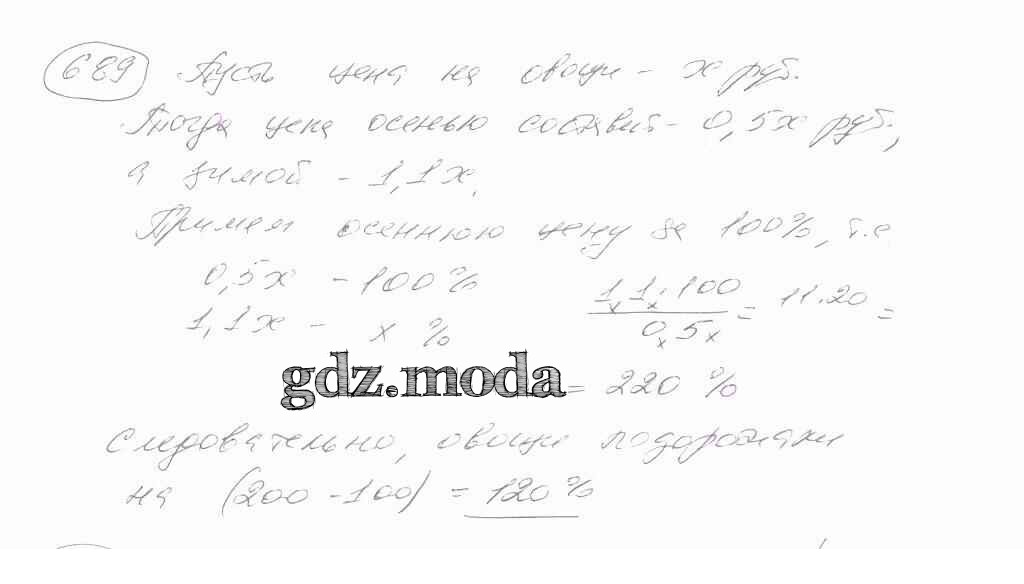 689 Пусть цена на овощи - x руб.
Тогда цена осенью составит - 0,5x руб.,
а зимой - 1,1x.
Примем осеннюю цену за 100%, т.е
0,5x - 100%
1,1x - x %
1,1x·100 / 0,5x = 11·20 =
gdz.moda
= 220 %
Следовательно, овощи подорожали
на (200 - 100) = 120%